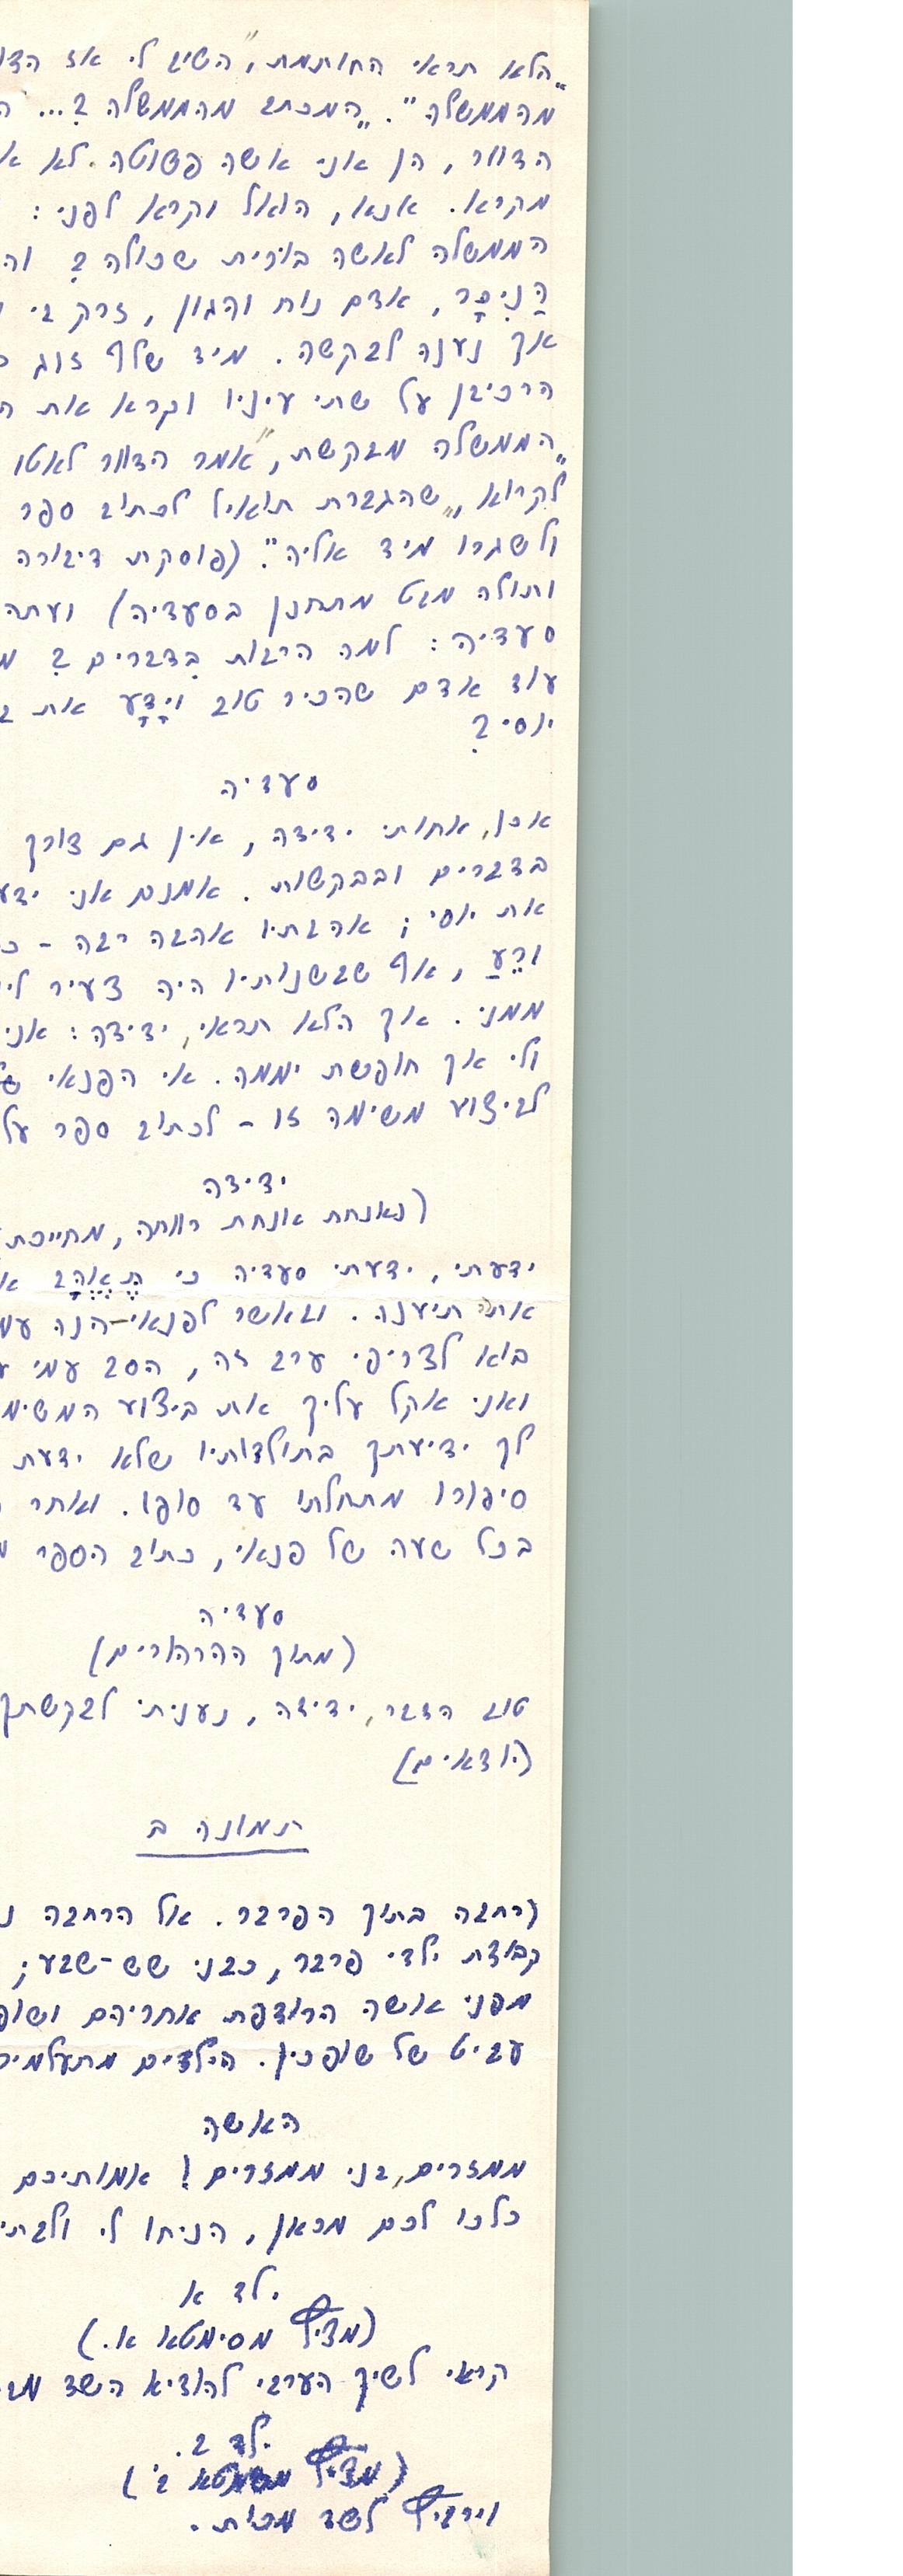 "הלא תראי החותמת," השיב לי אז הדו
מהממשלה". "המכתב מהממשלה ?... ה
הדוור, הן אני אשה פשוטה. לא א
מקרא. אנא, הואל וקרא לפני :
הממשלה לאשה בורית שכולה ? וה
הַנִיכָּר, אדם נוח והגון, זרק בי
אך נענה לבקשה. מיד שלף זוג
הרכיבן על שתי עיניו וקרא את ה
"הממשלה מבקשת," אמר הדוור לאטו
לקרוא, "שהגברת תואיל לכתוב ספר
ולשגרו מיד אליה". (פוסקת דיבורה
ותולה מבט מתחנן בסעדיה) ועתה
סעדיה : למה הרבות בדברים ? מ
עוד אדם שהכיר טוב וְיָדָע את ב
יוסי ?
סעדיה
אכן, אחותי ידידה, אין גם צורך
בדברים ובבקשות. אמנם אני ידע
את יוסי ; אהבתיו אהבה רבה - כ
ורֵעַ, אף שבשנותיו היה צעיר לי
ממני. אך הלא תראי, ידידה : אני
ולי אך חופשת יממה. אי הפנאי
לביצוע משימה זו - לכתוב ספר על
ידידה
(נאנחת אנחת רווחה, מחייכת
ידעתי, ידעתי סעדיה כי
אתה תיענה. ובאשר לפנאי - הנה עמ
בוא לצריפי ערב זה, הסב עמי
ואני אקל עליך את ביצוע המשימ
לך ידיעתך בתולדותיו שלא ידעת
סיפורו מתחלתו עד סופו. ואחר
בכל שעה של פנאי, כתוב הספר
סעדיה
(מתוך הרהורים)
טוב הדבר, ידידה, נעניתי לבקשתך
(יוצאים)
תמונה ב
(רחבה בתוך הפרבר. אל הרחבה נ
קבוצת ילדי פרבר, כבני שש-שבע ;
מפני אשה הרודפת אחריהם ושופ
עביט של שופכין. הילדים מתעלמים
האשה
ממזרים, בני ממזרים ! אמותיכם
כלכו לכם מכאן, הניחו לי ולבתי
ילד א
(מציץ מסימטא א.)
קראי לשיך הערבי להוציא השד מבי
ילד ב.
(מציץ מסימטא ב')
וירביץ לשד מכות.